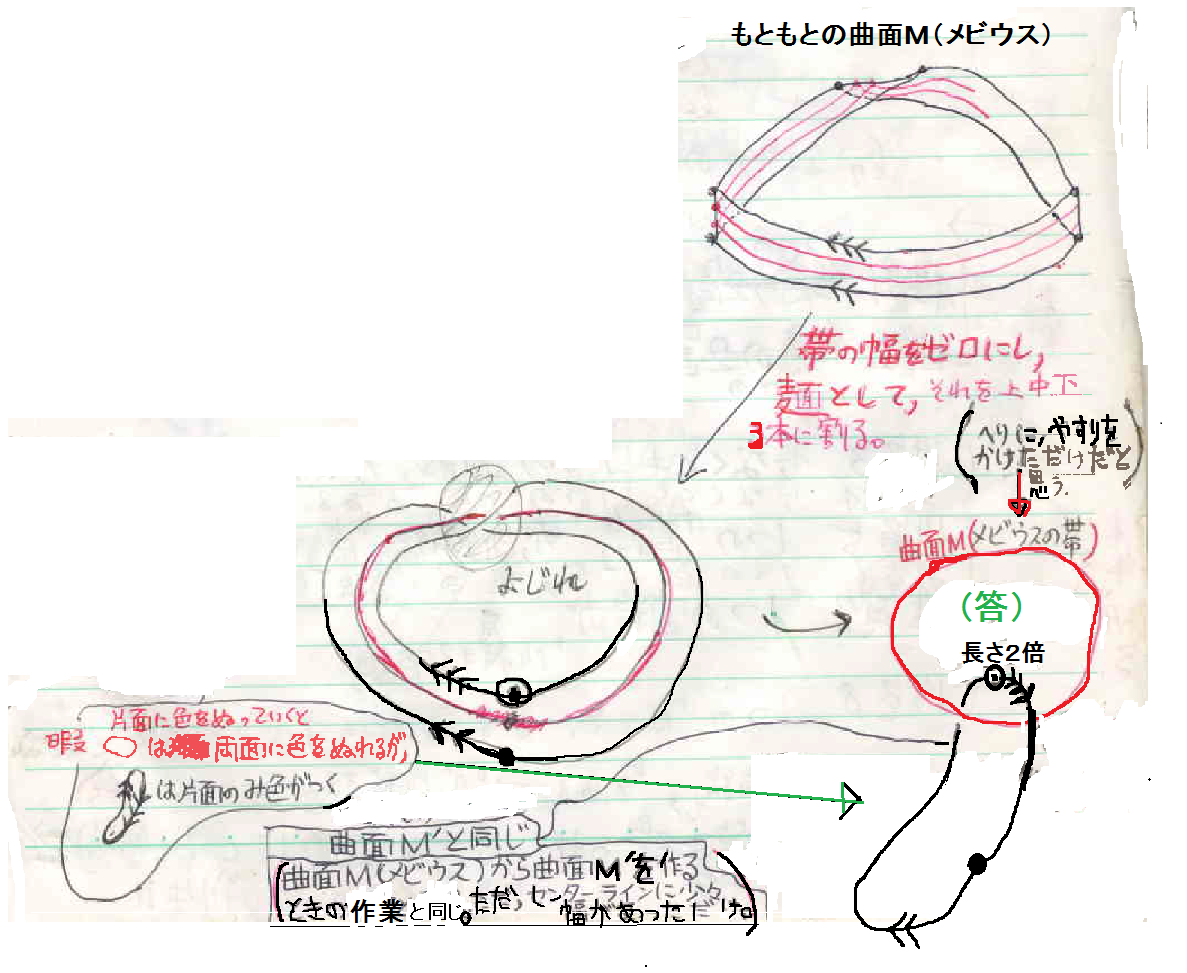 もともとの曲面M（メビウス）
帯の幅をゼロにし，
麺として，それを上中下
3本に割る。
（へりに，やすりを
かけただけだと
思う．）
曲面M（メビウスの帯）
（答）
長さ２倍
よじれ
片面に色をぬっていくと
は両面に色をぬれるが，
暇
は片面のみ色がつく
曲面M'と同じ
（曲面M（メビウス）から曲面M'を作る
ときの作業と同じ。ただ，センターラインに少々
幅があっただけ。）